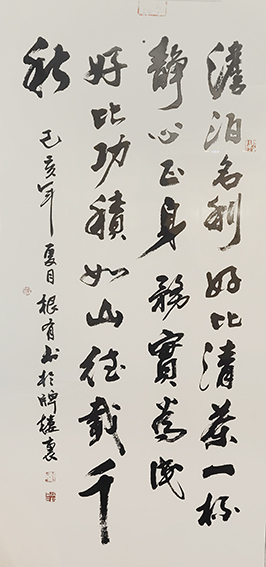 澹泊名利好比清茶一杯
靜心正身務實篤誠
好比功積如山德載千
秋
己亥年夏月根有书於牌樓裏